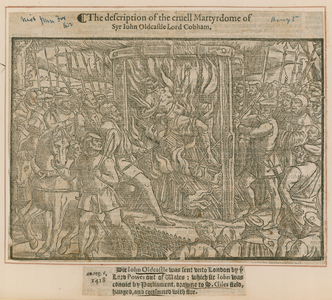 ¶The description of the cruell Martyrdome of
Syr Iohn Oldcastle Lord Cobham.
Henry 5
1418
Sir Iohn Oldcastle was sent vnto London by ẏ
Lord Powes out of Wales : which sir Iohn was
conuict by Parliament, drawne to S. Giles field,
hanged, and consumed with fire.